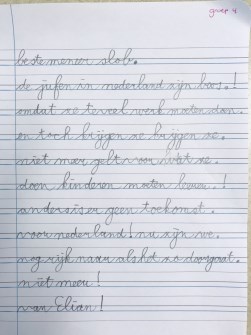 groep 4
beste meneer slob.
de jufen in nederland zijn boos.!
omdat ze te veel werk moeten doen.
en toch krijgen ze krijgen ze.
niet meer gelt voor wat ze.
doen kinderen moeten leeren.!
anders is er geen toekomst.
voor nederland! nu zijn we.
nog rijk maar als hot zo doorgaat.
niet meer!
van Elian!